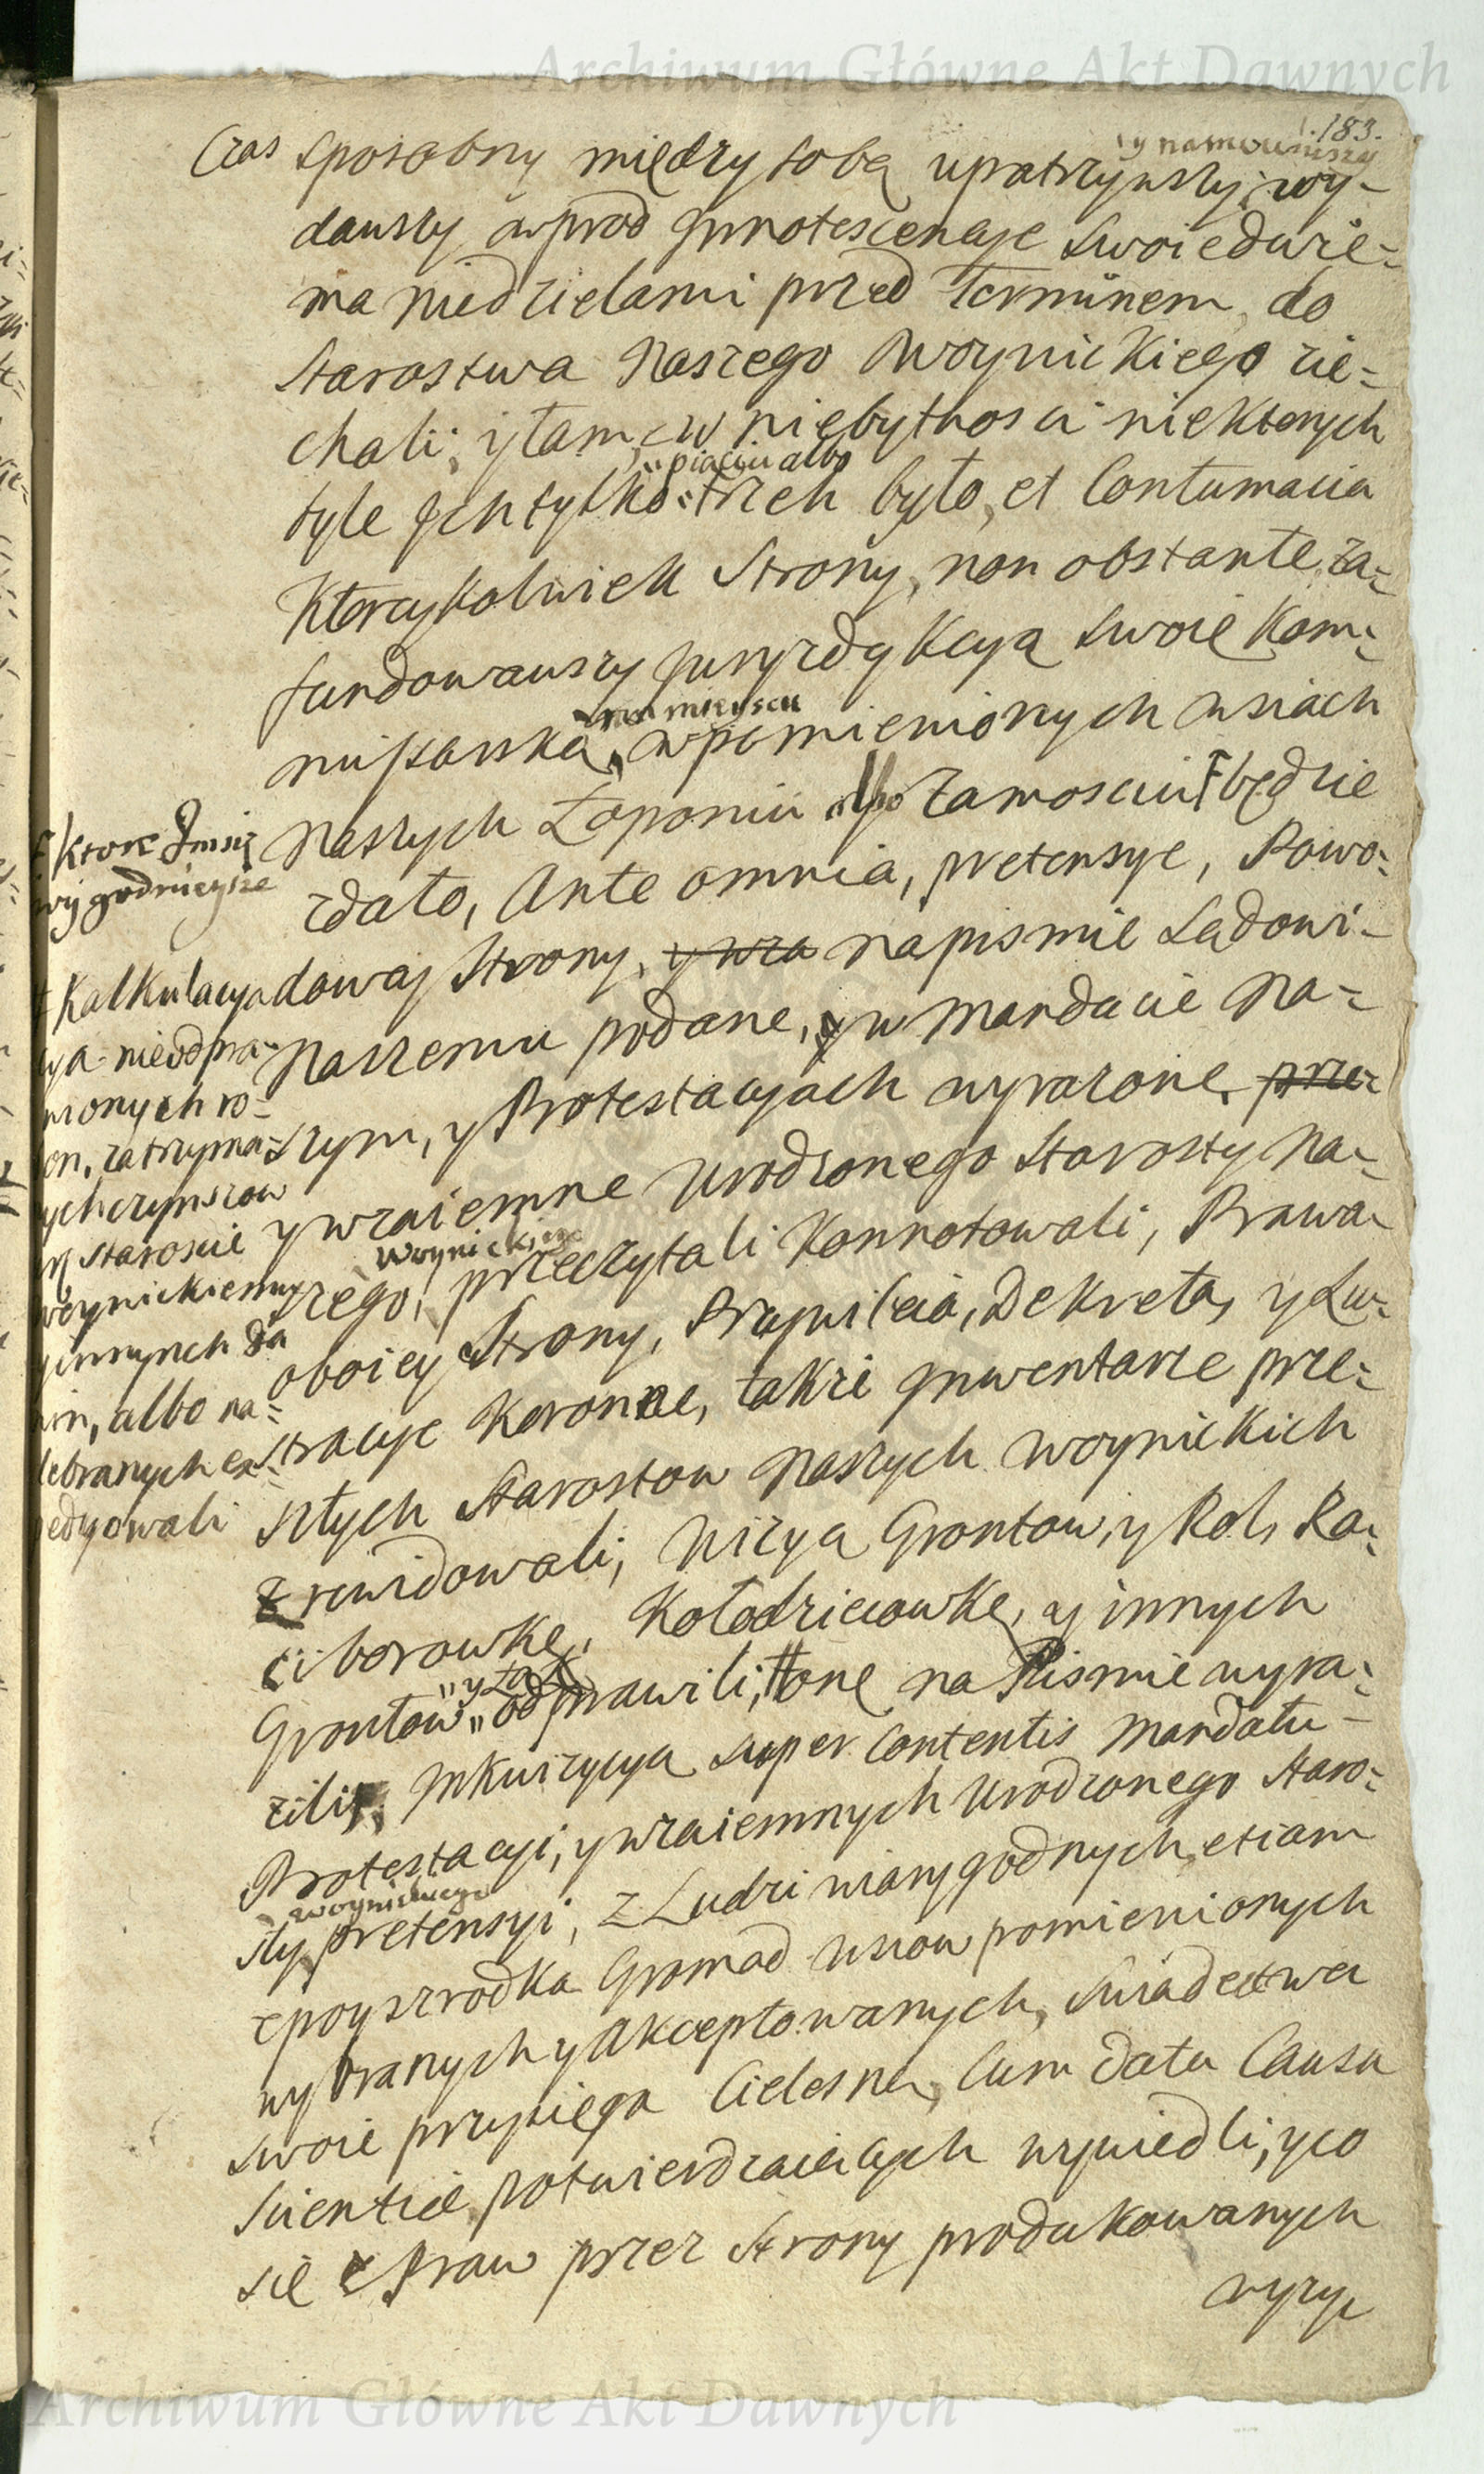 Archiwum Główne Akt Dawnych
183.
y namowiwszy
Czas sposobny między sobą upatrzywszy, wy-
dawszy wprod Innotescencye swoie dwie=
ma niedzielami przed Terminem, do
Starostwa Naszego Woynickiego zie=
chali, y tam, w niebytnosci niektorych
piąciu albo
tyle Ich tylko trzech było, et Contumacia
Ktoreykolwiek Strony, non obstante, za=
fundowawszy Jurysdykcyą swoię Kom=
na mieyscu
missarską, w pomienionych wsiach
Naszych Łoponiu albo Zamosciu będzie
ktore Im się
wygodnieysze
zdało, Ante omnia, pretensye, Powo=
dowey Strony, y wza na pismie Sądowi
Naszemu podane, y w Mandacie Na=
szym, y Protestacyach wyrazone, prze
y wzaiemne Urodzonego Starosty Na=
Woynickiego
szego, przeczytali Konnotowali, Prawa
oboiey Strony, Przywileia, Dekreta, y Lu=
stracye Koronne, takze Inwentarze prze=
szłych Starostow Naszych Woynickich
zrewidowali, Wizyą Grontow, y Rol, Ra=
ciborowkę, Kołodzieiowkę, y innych
y Łąk
Grontow odprawili, one na Pismie wyra=
zili, Inkwizycyą super Contentis Mandatu
Protestacyi, y wzaiemnych Urodzonego Staro=
Woynickiego
sty pretensyi, z Ludzi wiarygodnych, etiam
z poyszrodka Gromad wsiow pomienionych
wybranych y Akceptowanych, Swiadectwa
swoie przysięgą Cielesną, Cum data Causa
Scientiae, potwierdzaiących wywiedli, y co
się z Praw przez Strony produkowanych
wyzyc
Kalkulacyą
nieodpra=
wionych ro=
zatrzyma=
ych czynszow
Staroscie
Woynickiemu
innych da
albo na=
debranych ex=
pedyowali
Archiwum Główne Akt Dawnych